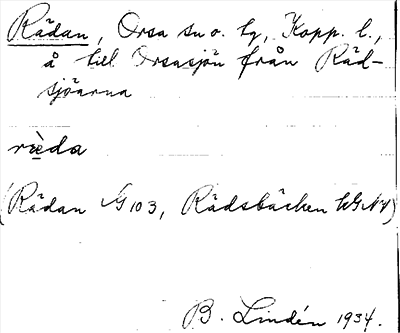 Rädan, Orsa sn o. tg, Kopp. l.,
å till Orsasjön från Räd-
sjöarna
rèda
(Rädan G 103, Rädsbäcken
B. Lindén 1934.